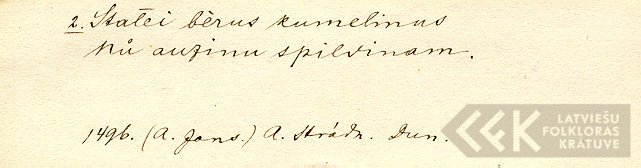 2. Statći bērus kumelinus
Nů auzinu spilvinam.
1496. (A. Jans.) A. Strádn. Dun.
LATVIEŠU
FOLKLORAS
KRĀTUVE